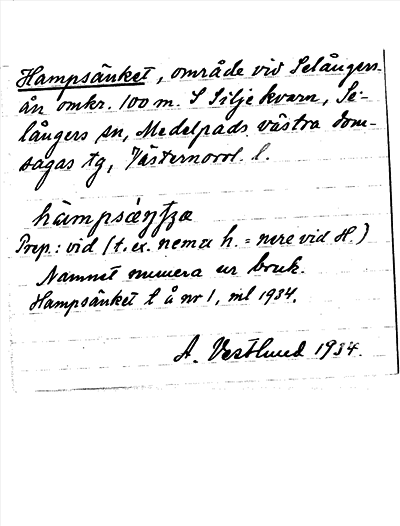 Hampsänket, område vid Selångers-
ån omkr. 100 m. S Silje kvarn, Se-
långers sn, Medelpads västra dom-
sagas tg, Västernorrl. l.
Prep.: vid (t. ex. neme h. = nere vid H.)
Namnet numera ur bruk.
Hampsänket l å nr 1, ml 1934.
A. Vestlund 1934.